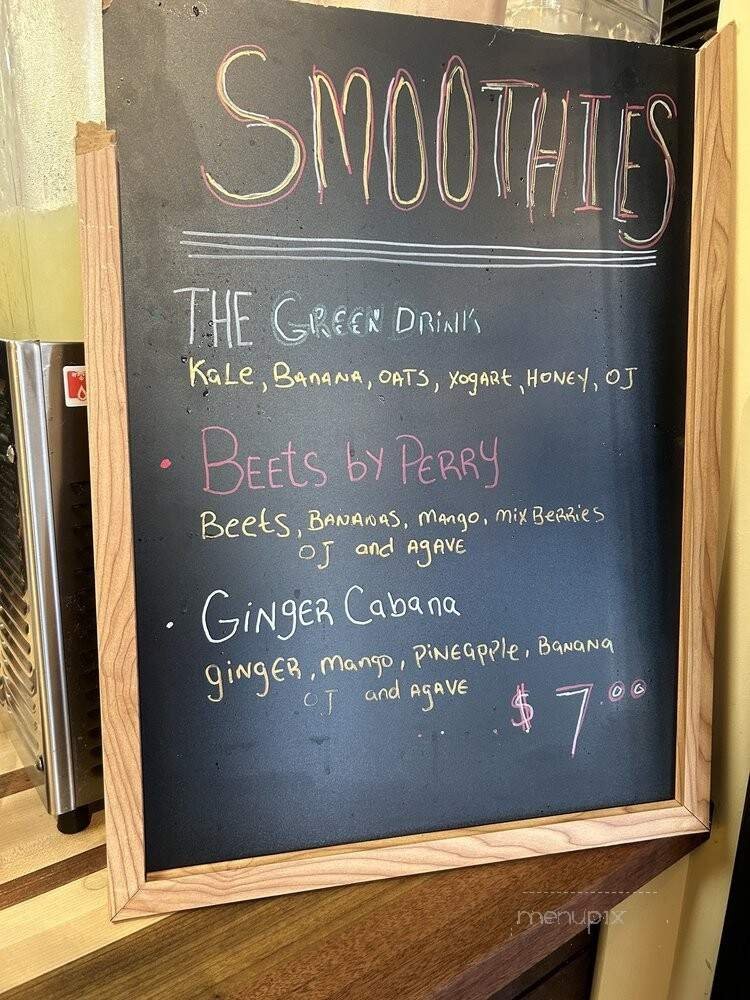 SMOOTHIES
THE GREEN DRINK
KaLe, BANANA, OATS, YogaRt, HONEY, OJ
• BEEts by PERRY
Beets, BANANAS, Mango, mix Berries
OJ and AGAVE
• GiNgER Cabana
giNgER, Mango, PiNEApple, BANANA
OJ and AGAVE
$7.00
menupix